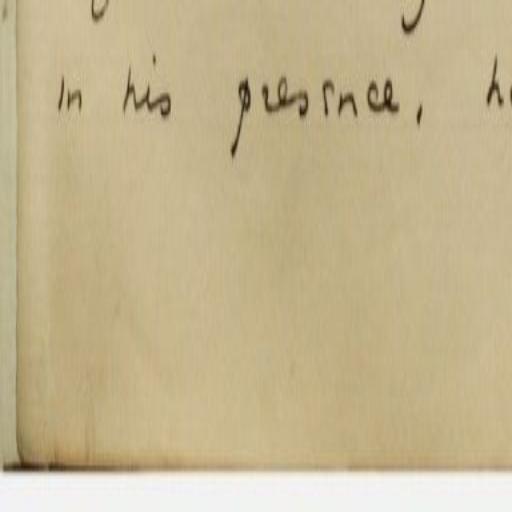 in his presence,